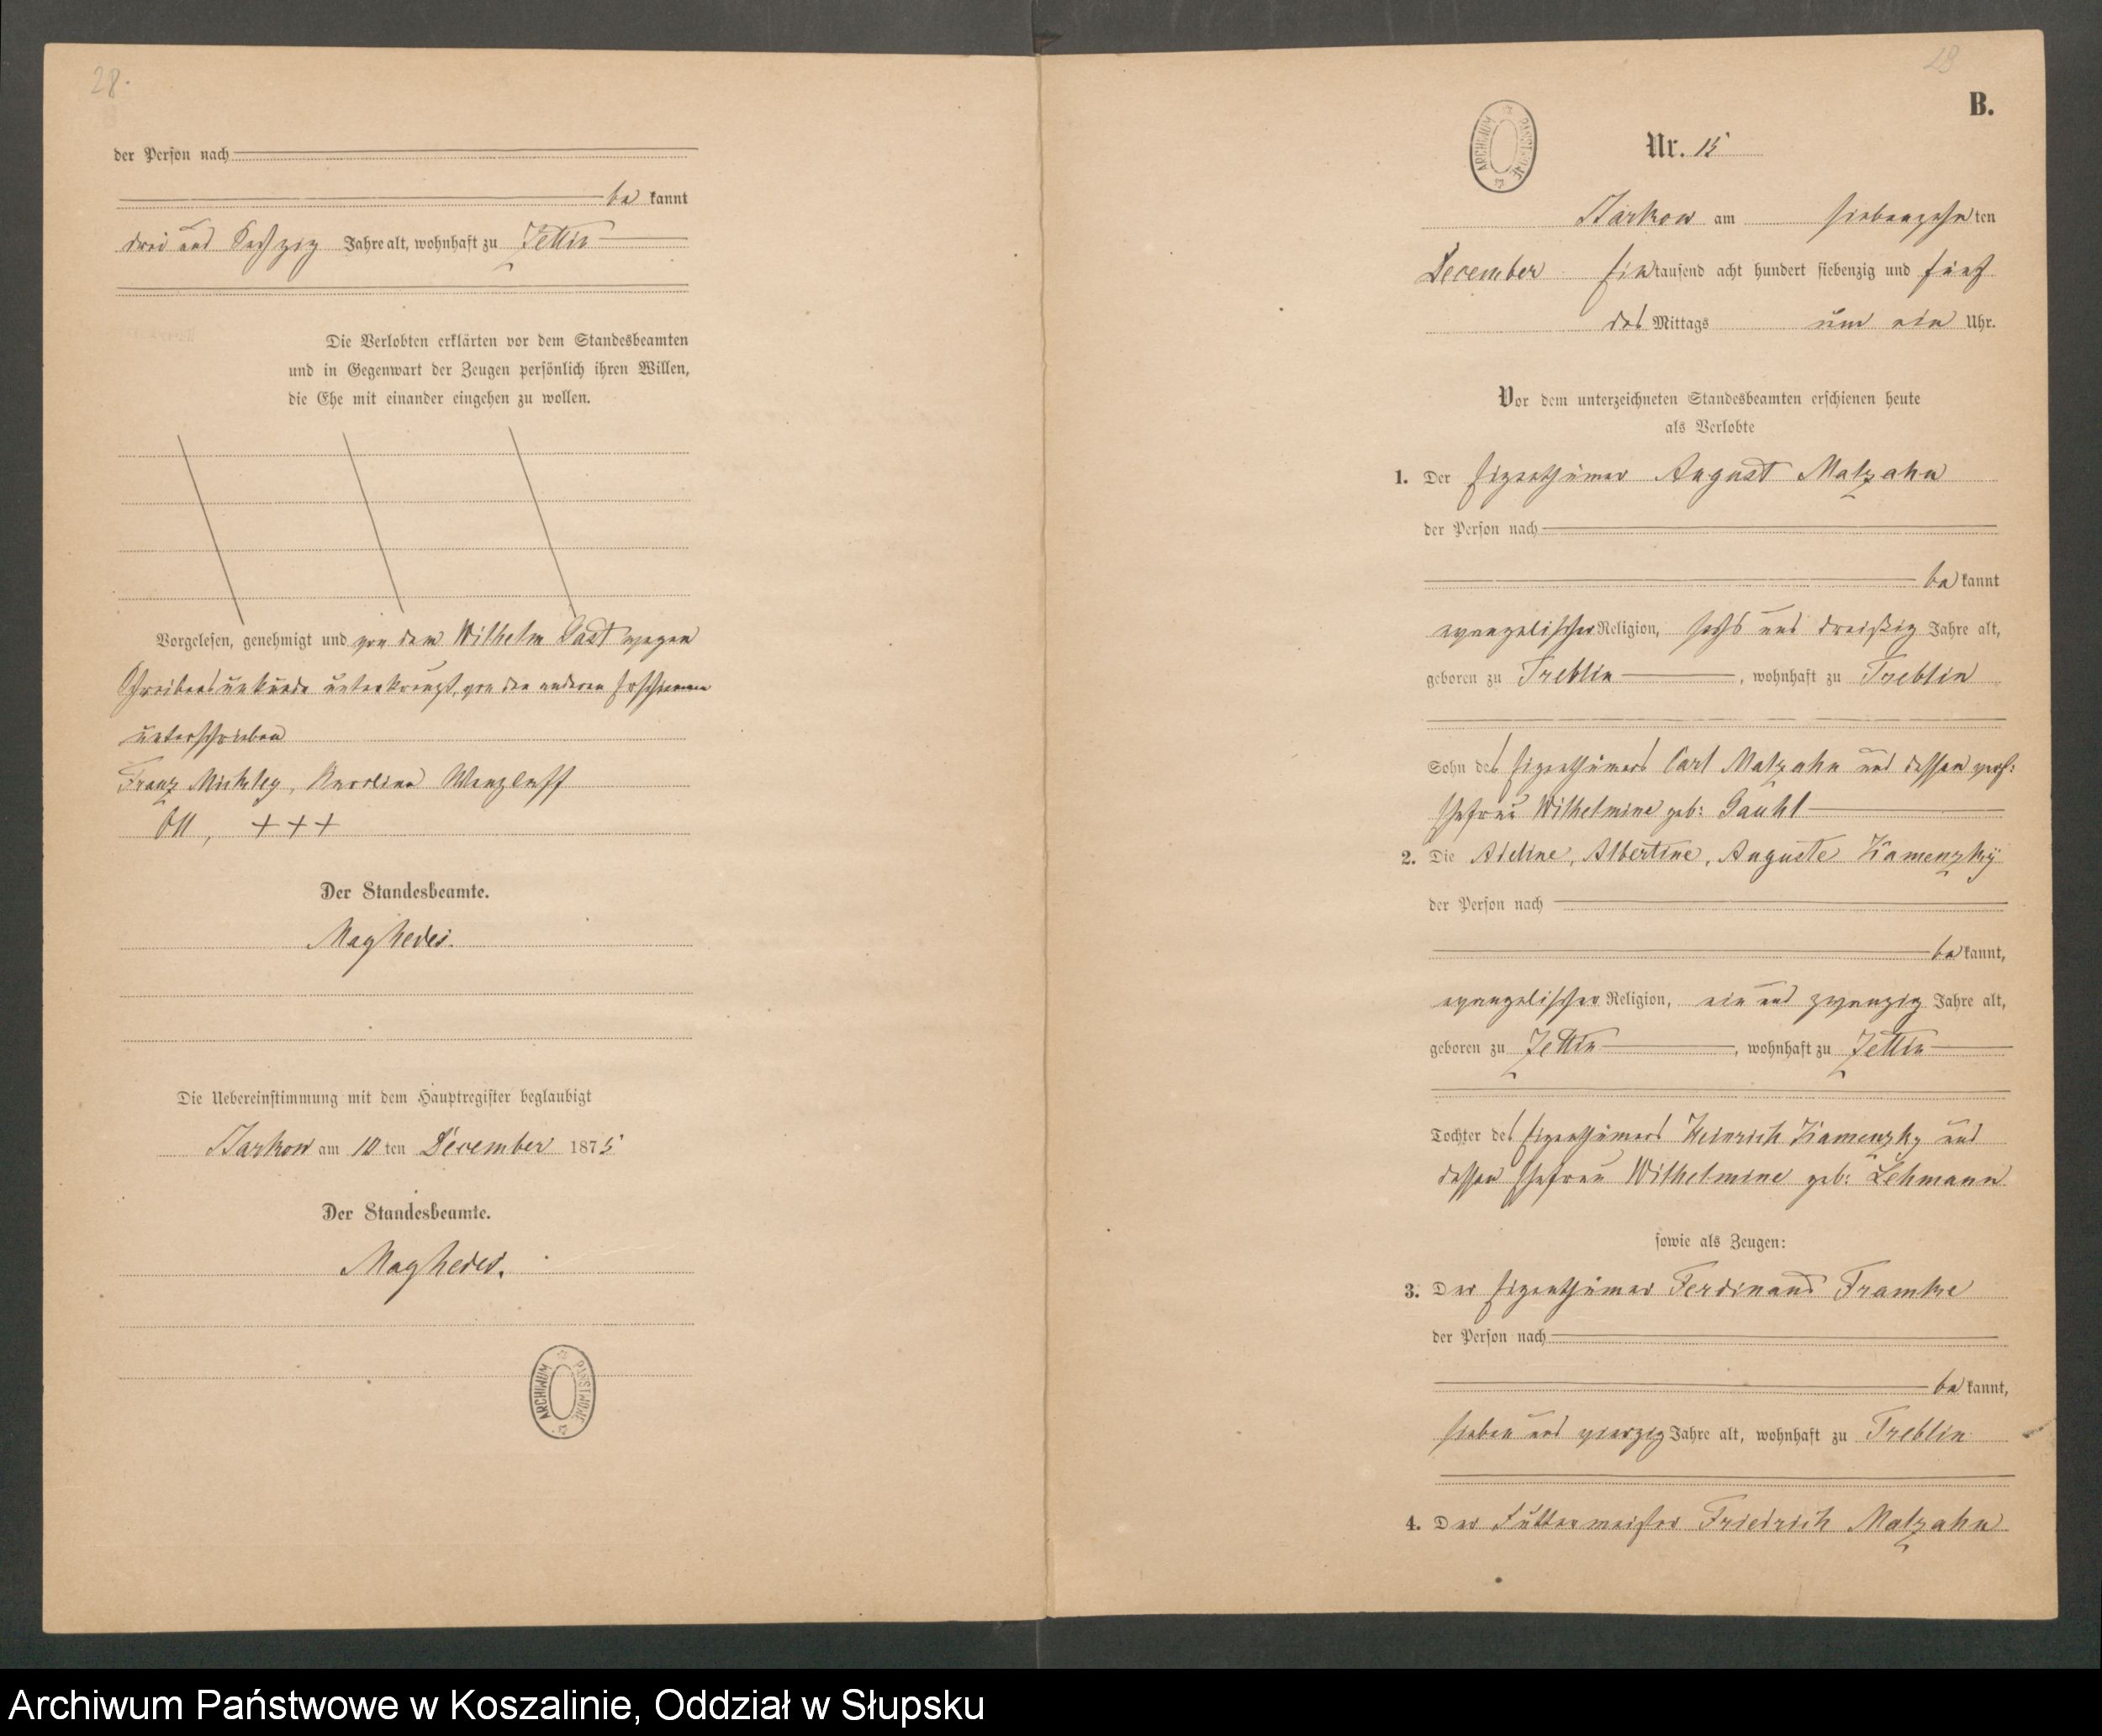 28.
der Person nach
be kannt
drei und Sechzig Jahre alt, wohnhaft zu Zettin
Die Verlobten erklärten vor dem Standesbeamten
und in Gegenwart der Zeugen persönlich ihren Willen,
die Ehe mit einander eingehen zu wollen.
Vorgelesen, genehmigt und von dem Wilhelm Gast wegen
Schreibensunkunde unterkreuzt, von den anderen Erschienenen
unterschrieben
Franz Karoline Wenzlaff
Ott, +++
Der Standesbeamte.
Die Uebereinstimmung mit dem Hauptregister beglaubigt
Barkow am 10 ten December 1875
Der Standesbeamte.
ARCHIWUM PAŃSTWOWE
29
B.
ARCHIWUM PAŃSTWOWE
Nr. 15
Barkow am siebenzehnten
December Eintausend acht hundert siebenzig und fünf
des Mittags um ein Uhr.
Vor dem unterzeichneten Standesbeamten erschienen heute
als Verlobte
1. Der Eigenthümer August Malzahn
der Person nach
be kannt
evangelischer Religion, sechs und dreißig Jahre alt,
geboren zu Treblin, wohnhaft zu Treblin
Sohn des Eigenthümers Carl Malzahn und dessen
Ehefrau Wilhelmine geb:
2. Die Albertine, Auguste Kamenzky
der Person nach
be kannt,
evangelischer Religion, ein und zwanzig Jahre alt,
geboren zu Zettin, wohnhaft zu Zettin
Tochter des Eigenthümers Heinrich Kamenzky und
dessen Ehefrau Wilhelmine geb: Lehmann
sowie als Zeugen:
3. Der Eigenthümer Ferdinand Framke
der Person nach
be kannt,
sieben und vierzig Jahre alt, wohnhaft zu Treblin
4. Der Futtermeister Friedrich Malzahn
Archiwum Państwowe w Koszalinie, Oddział w Słupsku